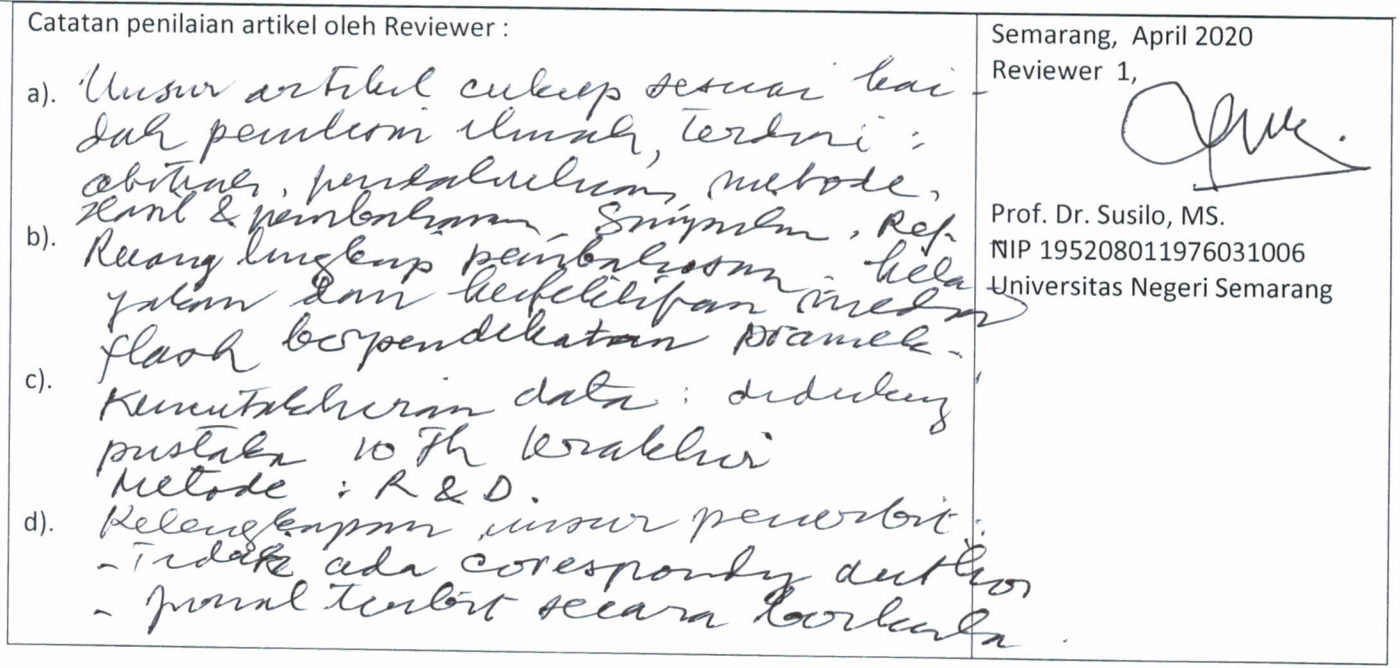 Catatan penilaian artikel oleh Reviewer :
a). Unsur artikel cukup sesuai kai-
dah penulisan ilmiah, terdiri :
abstrak, pendahuluan, metode,
Hasil & pembahasan, Simpulan, Ref.
b). Ruang lingkup pembahasan : kela
yakan dan keefektifan media
flash berpendekatan
c). Kemutakhiran data : didukung
pustaka 10 Th terakhir
Metode : R & D.
d). Kelengkapan unsur penerbit :
- Tidak ada coresponding author
- jurnal terbit secara berkala.
Semarang, April 2020
Reviewer 1,
Prof. Dr. Susilo, MS.
NIP 195208011976031006
Universitas Negeri Semarang